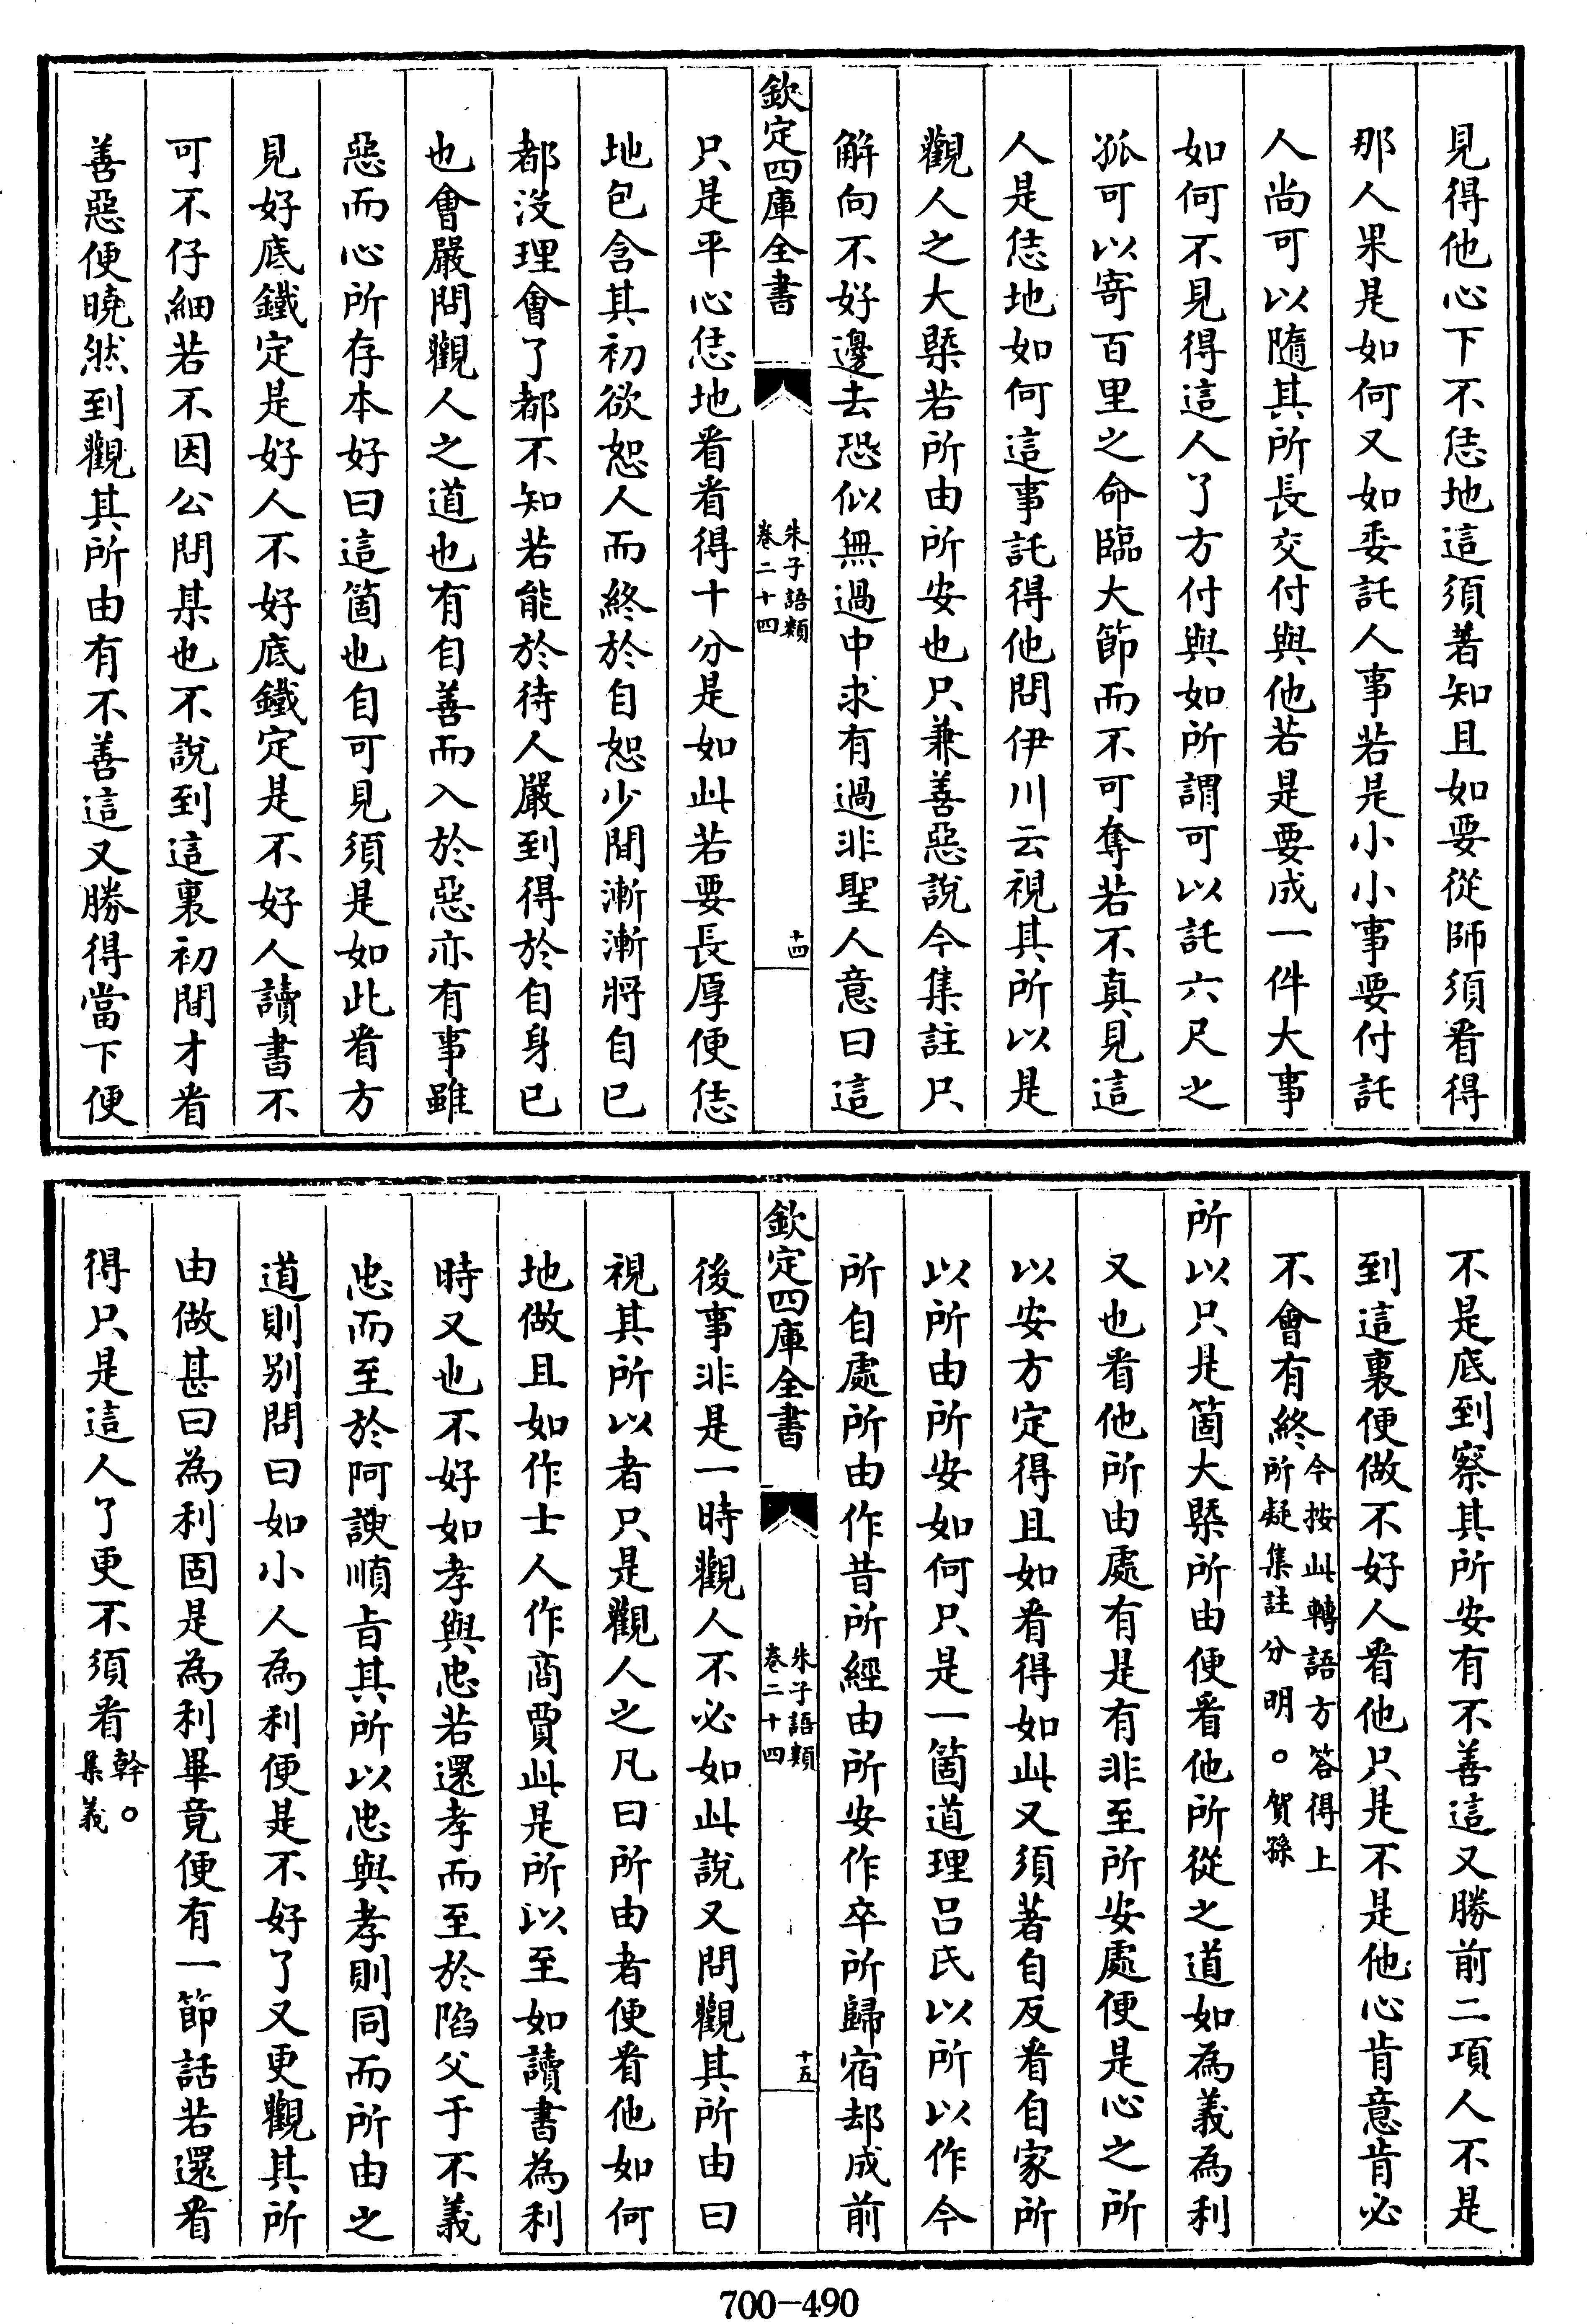 見得他心下不恁地這須著知且如要從師須看得
那人果是如何又如委託人事若是小小事要付託
人尚可以隨其所長交付與他若是要成一件大事
如何不見得這人了方付與如所謂可以託六尺之
孤可以寄百里之命臨大節而不可奪若不真見這
人是恁地如何這事託得他問伊川云視其所以是
觀人之大槩若所由所安也只兼善惡說今集註只
解向不好邊去恐似無過中求有過非聖人意曰這
欽定四庫全書
朱子語類
卷二十四
十四
只是平心恁地看看得十分是如此若要長厚便恁
地包含其初欲恕人而終於自恕少間漸漸將自已
都沒理會了都不知若能於待人嚴到得於自身已
也會嚴問觀人之道也有自善而入於惡亦有事雖
惡而心所存本好曰這箇也自可見須是如此看方
見好底鐵定是好人不好底鐵定是不好人讀書不
可不仔細若不因公問某也不說到這裏初間才看
善惡便曉然到觀其所由有不善這又勝得當下便
不是底到察其所安有不善這又勝前二項人不是
到這裏便做不好人看他只是不是他心肯意肯必
不會有終今按此轉語方答得上
所疑集註分明。賀孫
所以只是箇大槩所由便看他所從之道如為義為利
又也看他所由處有是有非至所安處便是心之所
以安方定得且如看得如此又須著自反看自家所
以所由所安如何只是一箇道理呂氏以所以作今
所自處所由作昔所經由所安作卒所歸宿却成前
欽定四庫全書
朱子語類
卷二十四
十五
後事非是一時觀人不必如此說又問觀其所由曰
視其所以者只是觀人之凡曰所由者便看他如何
地做且如作士人作商賈此是所以至如讀書為利
時又也不好如孝與忠若還孝而至於陷父于不義
忠而至於阿諛順旨其所以忠與孝則同而所由之
道則别問曰如小人為利便是不好了又更觀其所
由做甚曰為利固是為利畢竟便有一節話若還看
得只是這人了更不須看幹。
集義
700-490